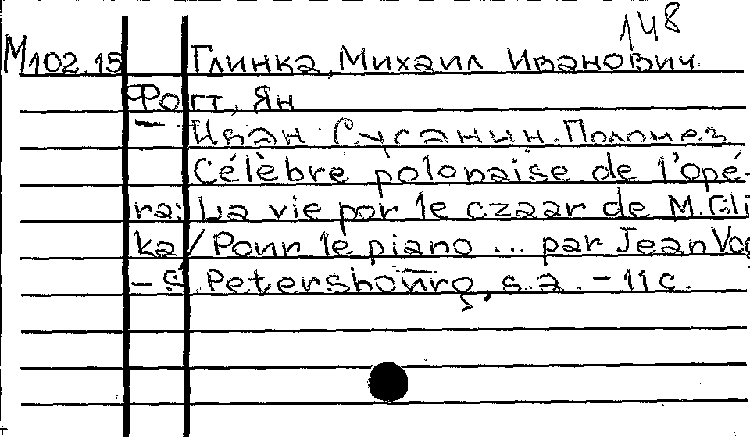 148
М102.15 Глинка, Михаил Иванович
Фогт, Ян
Иван Сусанин. Полонез
Célèbre polonaise de l'opé-
ra: La vie por le czaar de M. Gli
ka / Pour le piano ... par Jean Vog
– S. Petersbourg, s.a. – 11 с.